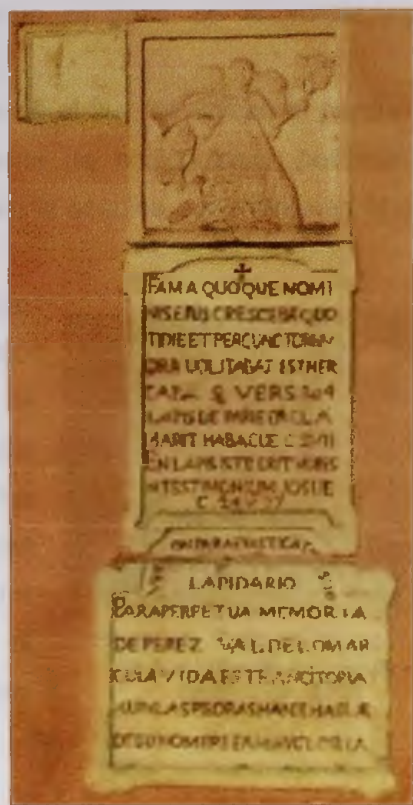 FAMA QUOQUE NOMI
NIS EJUS CRESCEBAT QUO
TIDIE ET PER CUNCTORUM
ORA VOLITABAT ESTHER
CAP. 9 VERS 4
LAPIS DE PARIETE CLA
MABIT HABACUC C. 2 V. 11
EN LAPIS ISTE ERIT VOBIS
IN TESTIMONIUM JOSUE
C. 24 V. 27
LAPIDARIO
PARA PERPETUA MEMORIA
DE PEREZ VALDELOMAR
CUIA VIDA ES TRANCITORIA
AUN LAS PIEDRAS HAN DE HABLAR
DE SU NOMBRE